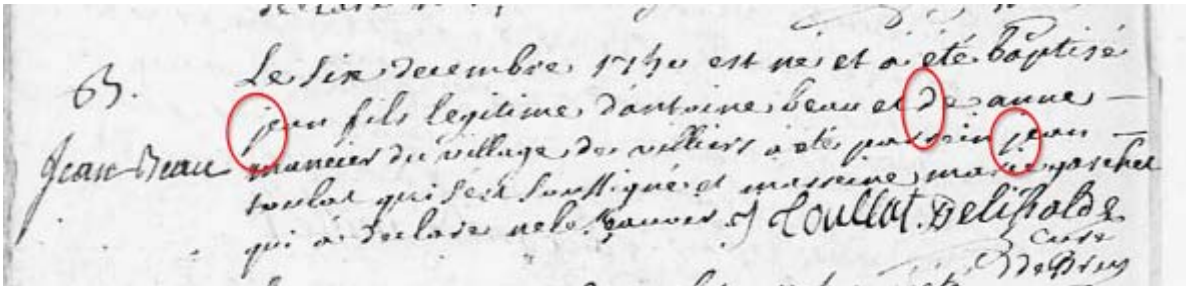 Le six decembre 1740 est né et a été baptisé
63.
jean fils legitime d'antoine beau et de anne
Jean Beau
mancier du village de villiers a été parein jean
toulat qui s'est soussigné et marreine marie
qui a declaré ne le scavoir Toullat. Delisbalde
Curé